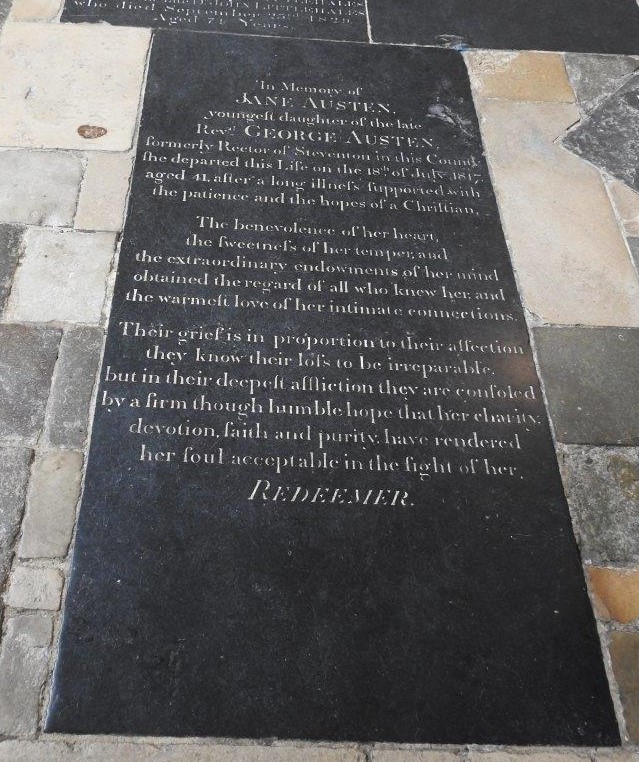 who died September 23rd 1829
Aged 74 Years.
In Memory of
JANE AUSTEN,
youngeſt daughter of the late
Revd. GEORGE AUSTEN,
formerly Rector of Steventon in this County
ſhe departed this Life on the 18th of July 1817,
aged 41, after a long illneſs ſupported with
the patience and the hopes of a Chriſtian.
The benevolence of her heart,
the ſweetneſs of her temper, and
the extraordinary endowments of her mind
obtained the regard of all who knew her, and
the warmeſt love of her intimate connections.
Their grief is in proportion to their affection
they know their loſs to be irreparable,
but in their deepeſt affliction they are conſoled
by a firm though humble hope that her charity,
devotion, faith and purity, have rendered
her ſoul acceptable in the ſight of her
REDEEMER.